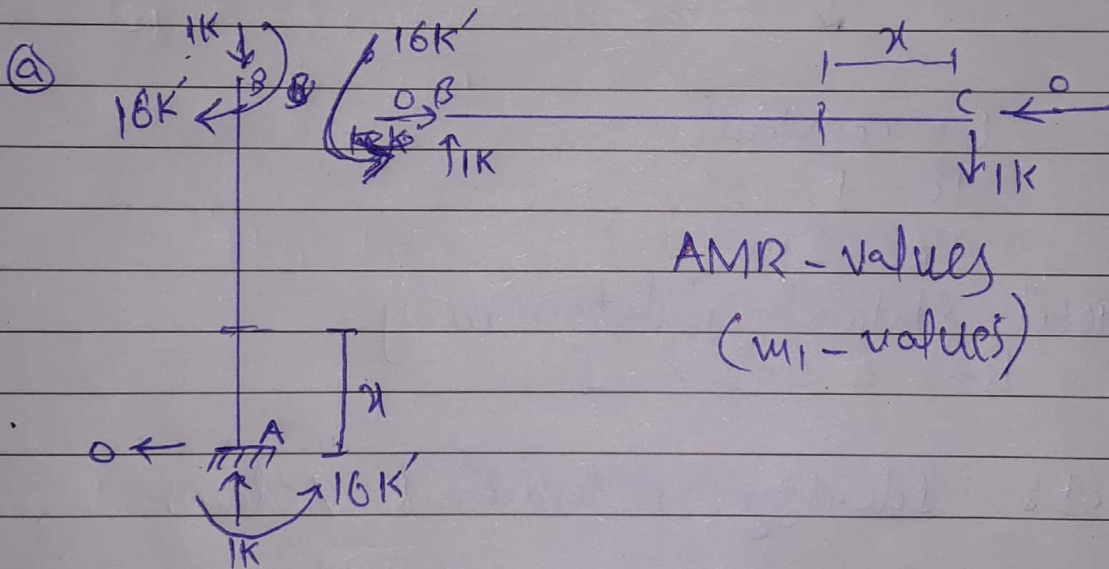 ⓐ
1K
16K'
B
16K'
O
B
1K
x
C
O
1K
AMR-values
(m₁-values)
x
O
A
16K'
1K